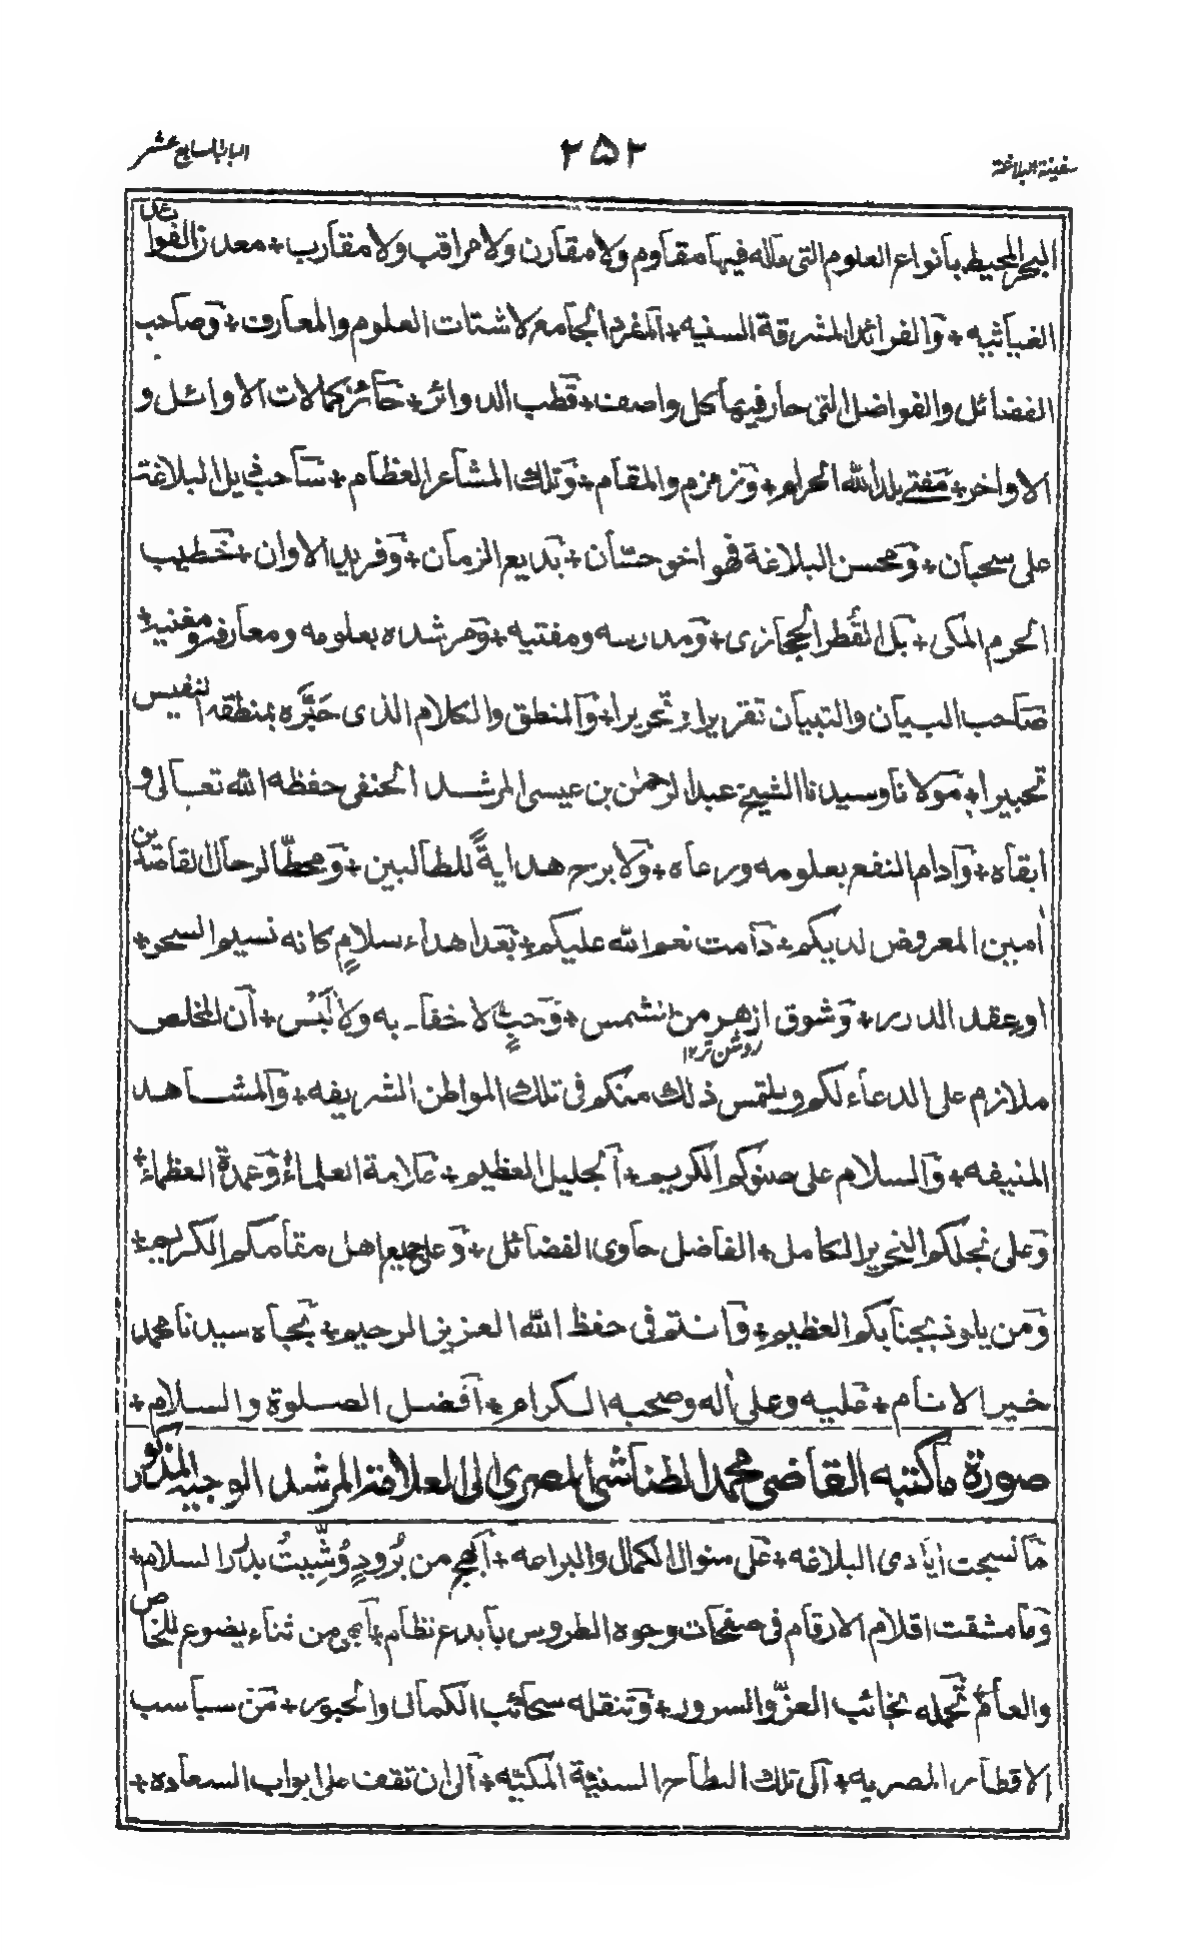 سفينة البلاغة
٢٥٢
الباب السابع عشر
البحر المحيط بانواع العلوم التى ماله فيها مقاوم ولا مقارن ولا مراقب ولا مقارب + معدن الفوائد
الغياثيه + والفرائد المشرقة السنيه + المفرد الجامع لاشتات العلوم والمعارف + وصاحب
الفضائل والفواضل التى حار فيها كل واصف + قطب الدوائر + حائز كمالات الاوائل و
الاواخر + مفتى بلد الله الحرام + وزمزم والمقام + وتلك المشاعر العظام + ساحب ذيل البلاغة
على سحبان + ومحسن البلاغة فهو اخو حسّان + بديع الزمان + وفريد الاوان + خطيب
الحرم المكى + بل القُطر الحجازى + ومدرسه ومفتيه + ومرشده بعلومه ومعارفه ومغنيه +
صاحب البيان والتبيان تقريرا وتحريرا + والمنطق والكلام الذى حَبَّره بمنطقه النفيس
تحبيرا + مولانا وسيدنا الشيخ عبد الرحمٰن بن عيسى المرشد الحنفى حفظه الله تعالى و
ابقاه + وادام النفع بعلومه ورعاه + ولا برح هدايةً للطالبين + ومحطّا لرحال القاصدين
اٰمين المعروض لديكم + دامت نعم الله عليكم + بعد اهداء سلامٍ كانه نسيم السحر +
او عقد الدرر + وشوق ازهر من الشمس + وحبٍ لا خفاء به ولا لَبْس + ان المخلص
روشن تر ١٢
ملازم على الدعاء لكم ويلتمس ذلك منكم فى تلك المواطن الشريفه + والمشاهد
المنيفه + والسلام على صنوكم الكريم + الجليل العظيم + علامة العلماء + وعمدة العظماء +
وعلى نجلكم النحرير الكامل + الفاضل حاوى الفضائل + وعلى جميع اهل مقامكم الكريم +
ومن يلوذ بجنابكم العظيم + وانتم فى حفظ الله العزيز الرحيم + بجاه سيدنا محمد
خير الانام + عليه وعلى اٰله وصحبه الكرام + افضل الصلوة والسلام +
صورة ما كتبه القاضى محمد الطناشى المصرى الى العلامة المرشد الوجيه المذكور
ما نسجت ايادى البلاغه + على منوال الكمال والبراعه + ابهج من بُرودٍ وُشِّيتُ بدُرر السلام +
وما مشقت اقلام الارقام فى صفحات وجوه الطروس بابدع نظام + ابهى من ثناء يضوع للخاص
والعام + تحمله نجائب العزّ والسرور + وتنقله سحائب الكمال والحبور + من سباسب
الاقطار المصريه + الى تلك البطاح السنيّة المكيّه + الى ان تقف على ابواب السعاده +